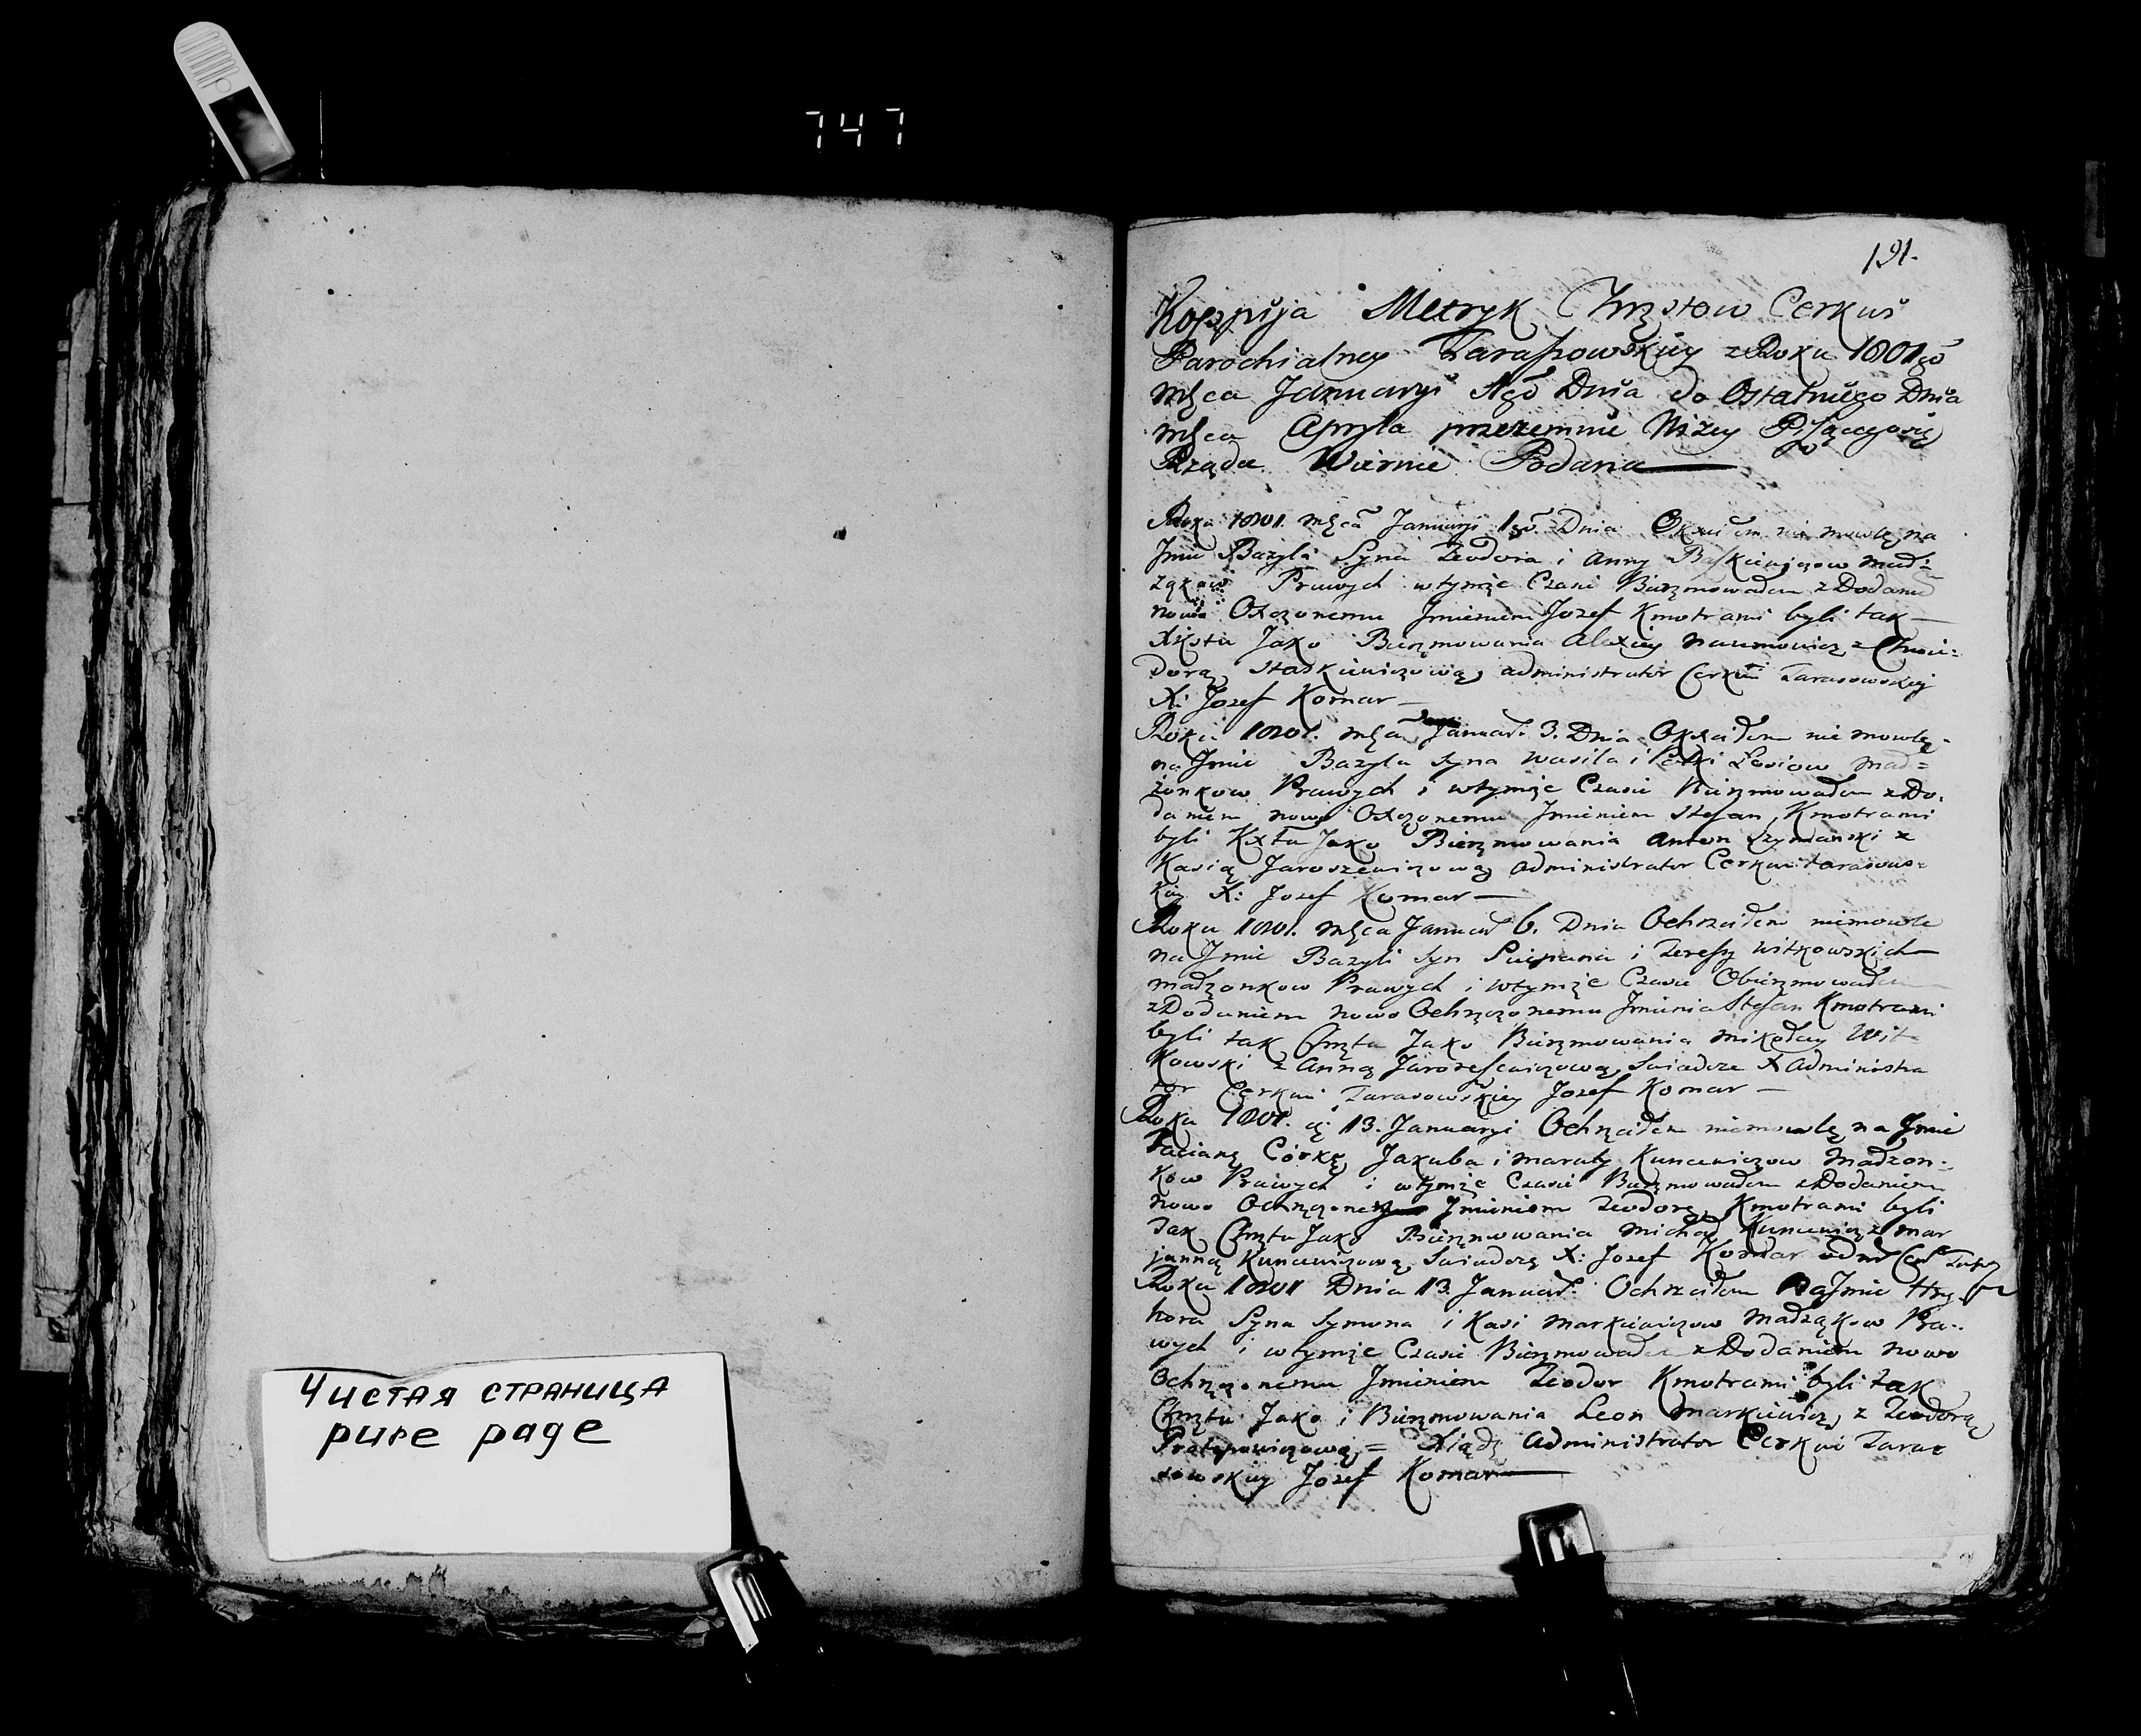 747
Чистая страница
pure page
191.
Koppija Metryk Chrzstow Cerkwi
Parochialney Taraszowskiey z Roku 1801go
Msca Januaryi 1go Dnia do Ostatniego Dnia
Msca Apryla przezemnie Niżey
Rządu Wiernie Podana
Roku 1801. Msca Januaryi 1go Dnia niemowlę na
Jmie Bazyli Syna Teodora i Anny Mał=
Prawych wtymże Czasie Bierzmowałem z Dodaniem
nowo Jmieniem Jozef Kmotrami byli tak
Jako Bierzmowania Alexiey Naumowicz z
Staskiewiczową administrator Cerkwi Tarasowskiey
X: Jozef Komar
Roku 1801. Msca Januar. 3. Dnia niemowlę
na Jmie Bazyla Syna Wasila i Lesiow Mał=
żonkow Prawych i wtymże Czasie Bierzmowałem z Do=
daniem nowo Jmieniem Stefan Kmotrami
byli Jako Bierzmowania Anton Szymanski z
Kasią Jaroszewiczową Administrator Cerkwi Tarasows=
kiey X: Jozef Komar
Roku 1801. Msca Januar 6. Dnia Ochrzciłem niemowle
na Jmie Bazyli Syn i Teressy Witkowskich
Małżonkow Prawych i wtymże Czasie Obierzmowałem
z Dodaniem nowo Ochrzczonemu Jmienia Stefan Kmotrami
byli tak Chrztu Jako Bierzmowania Mikołay Wit=
kowski z Anną Swiadcze X Administra
tor Cerkwi Tarasowskiey Jozef Komar
Roku 1801. 13. Januaryi Ochrzciłem niemowlę na Jmie
Tacianę Córkę Jakuba i Maruty Kuncewiczow Małżon=
kow Prawych i wtymże Czasie Bierzmowałem z Dodaniem
nowo Jmieniem Teodorę Kmotrami byli
Tak Chrztu Jako Bierzmowania Michał Kuncewicz z Mar
janną Kuncewiczową Swiadczę X: Jozef Komar
Roku 1801 Dnia 13. Januar. Ochrzciłem Na Jmie Hry=
hora Syna Symona i Kasi Markiewiczow Małżąkow Pra=
wych i wtymże Czasie Bierzmowałem z Dodaniem nowo
Ochrzczonemu Jmieniem Teodor Kmotrami byli tak
Chrztu Jako i Bierzmowania Leon Markiewicz z Teodorą
= Xiądz Administrator Cerkwi Tara=
sowskiey Jozef Komar